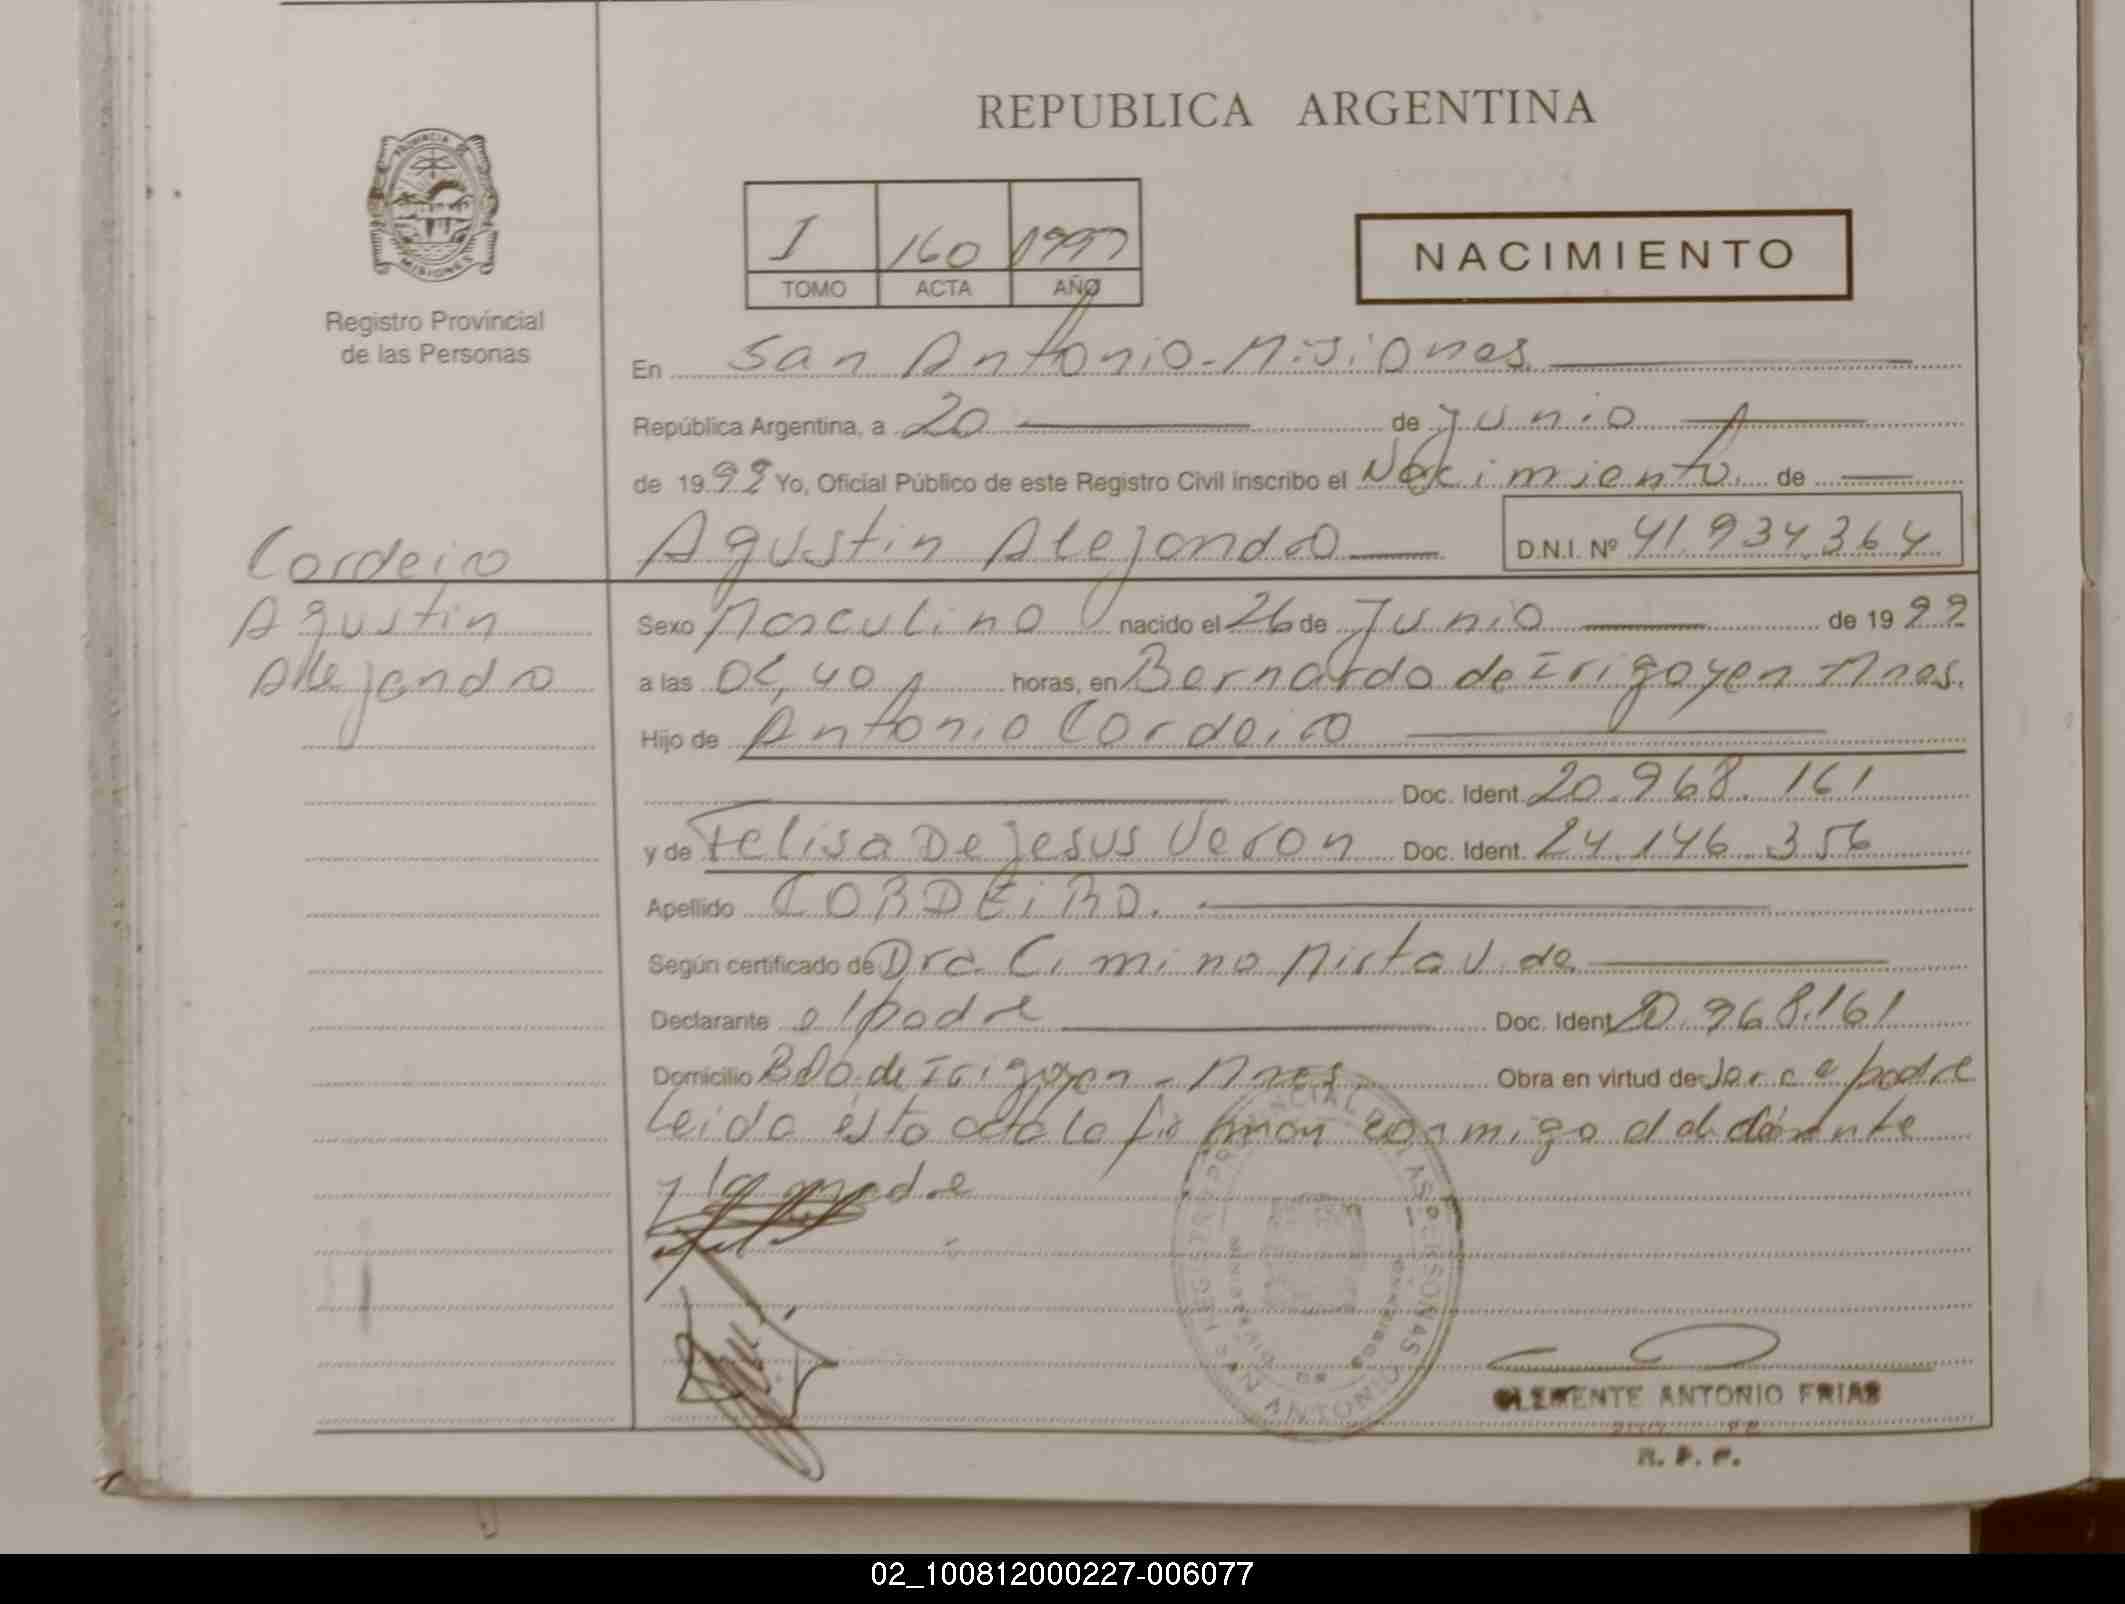 REPUBLICA ARGENTINA
PROVINCIA DE
MISIONES
Registro Provincial
de las Personas
I 160 1999
TOMO ACTA AÑO
NACIMIENTO
En San Antonio - Misiones
República Argentina, a 20 de Junio
de 1999 Yo, Oficial Público de este Registro Civil inscribo el Nacimiento de
Agustin Alejandro D.N.I. Nº 41.934.364
Cordeiro
Agustin
Alejandro
Sexo Masculino nacido el 26 de Junio de 1999
a las 06,40 horas, en Bernardo de Irigoyen Mnes.
Hijo de Antonio Cordeiro
Doc. Ident. 20.968.161
y de Felisa De Jesus Veron Doc. Ident. 24.146.356
Apellido CORDEIRO.
Según certificado de Dra. Cimino Mirta V. de
Declarante el padre Doc. Ident. 20.968.161
Domicilio Bdo. de Irigoyen - Mnes. Obra en virtud de ser el padre
Leida esta acta la firman conmigo el declarante
y la madre
REGISTRO PROVINCIAL DE LAS PERSONAS
SAN ANTONIO
CLEMENTE ANTONIO FRIAS
R. P. P.
02_100812000227-006077